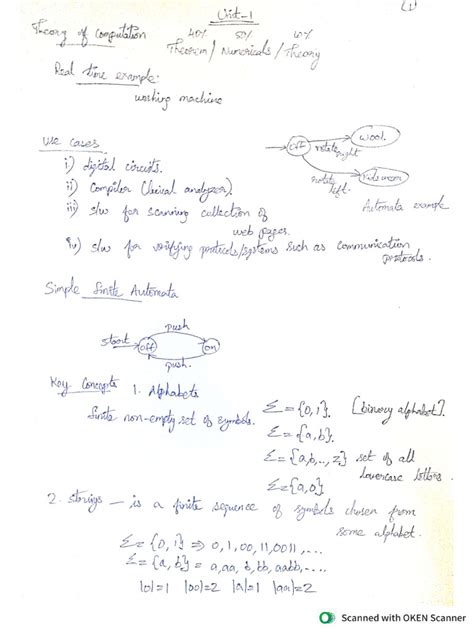 (1)
Unit-1
Theory of Computation 40% 50% 10%
Theorem / Numericals / Theory
Real time example.
washing machine
off rotate right wool.
rotate left.
Automata example
use cases
i) digital circuits.
ii) Compiler (lexical analyzer).
iii) s/w for scanning collection of
web pages.
iv) s/w for verifying protocols/systems such as communication
protocols.
Simple finite Automata
push
start off on
push.
Key Concepts 1. Alphabets
finite non-empty set of symbols.
Σ = {0,1}. [binary alphabet].
Σ = {a,b}.
Σ = {a,b,..,z} set of all
lowercase letters.
Σ = {a,0}
2. strings — is a finite sequence of symbols chosen from
some alphabet.
Σ = {0,1} ⇒ 0,1,00,11,0011,...
Σ = {a,b} = a,aa,b,bb,aabb,...
|0|=1 |00|=2 |a|=1 |aa|=2
Scanned with OKEN Scanner